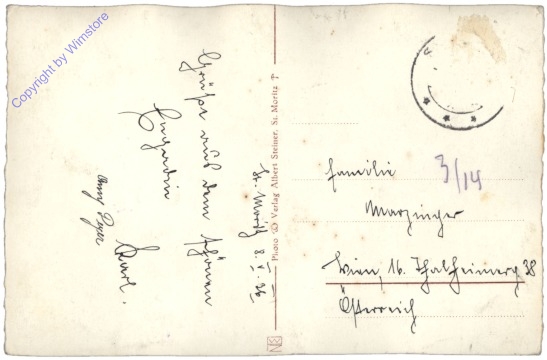 Copyright by Wimstore
Grüße aus dem schönen
Engadin
Karl.
St. Moritz 8. V. 36
Photo & Verlag Albert Steiner, St. Moritz
3/14
Familie
Marzinger
Wien, 16. Thalheimerg 38
Österreich